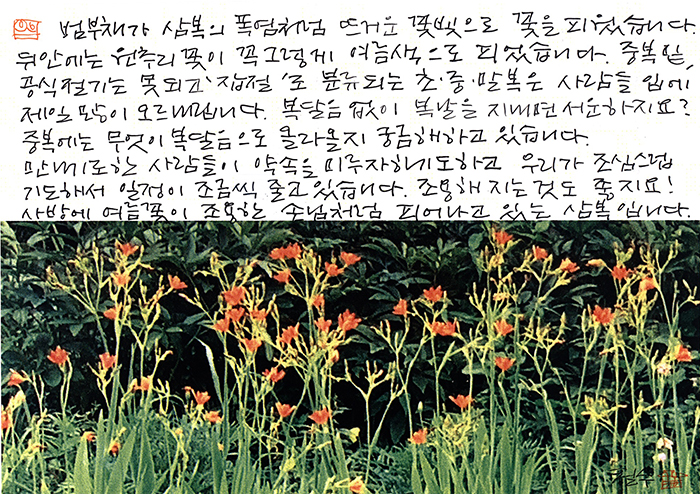 범부채가 삼복의 폭염처럼 뜨거운 꽃빛으로 꽃을 피웠습니다.
뒤안에는 원추리꽃이 꼭 그렇게 여름색으로 피었습니다. 중복 밑,
공식절기는 못되고 '잡절'로 분류되는 초·중·말복은 사람들 입에
제일 많이 오르내립니다. 복달음 없이 복날을 지내면 서운하지요?
중복에는 무엇이 복달음으로 올라올지 궁금해하고 있습니다.
만나기로한 사람들이 약속을 미루자하기도하고 우리가 조심스럽
기도해서 일정이 조금씩 줄고 있습니다. 조용해 지는것도 좋지요!
사방에 여름꽃이 조용한 손님처럼 피어나고 있는 삼복입니다.